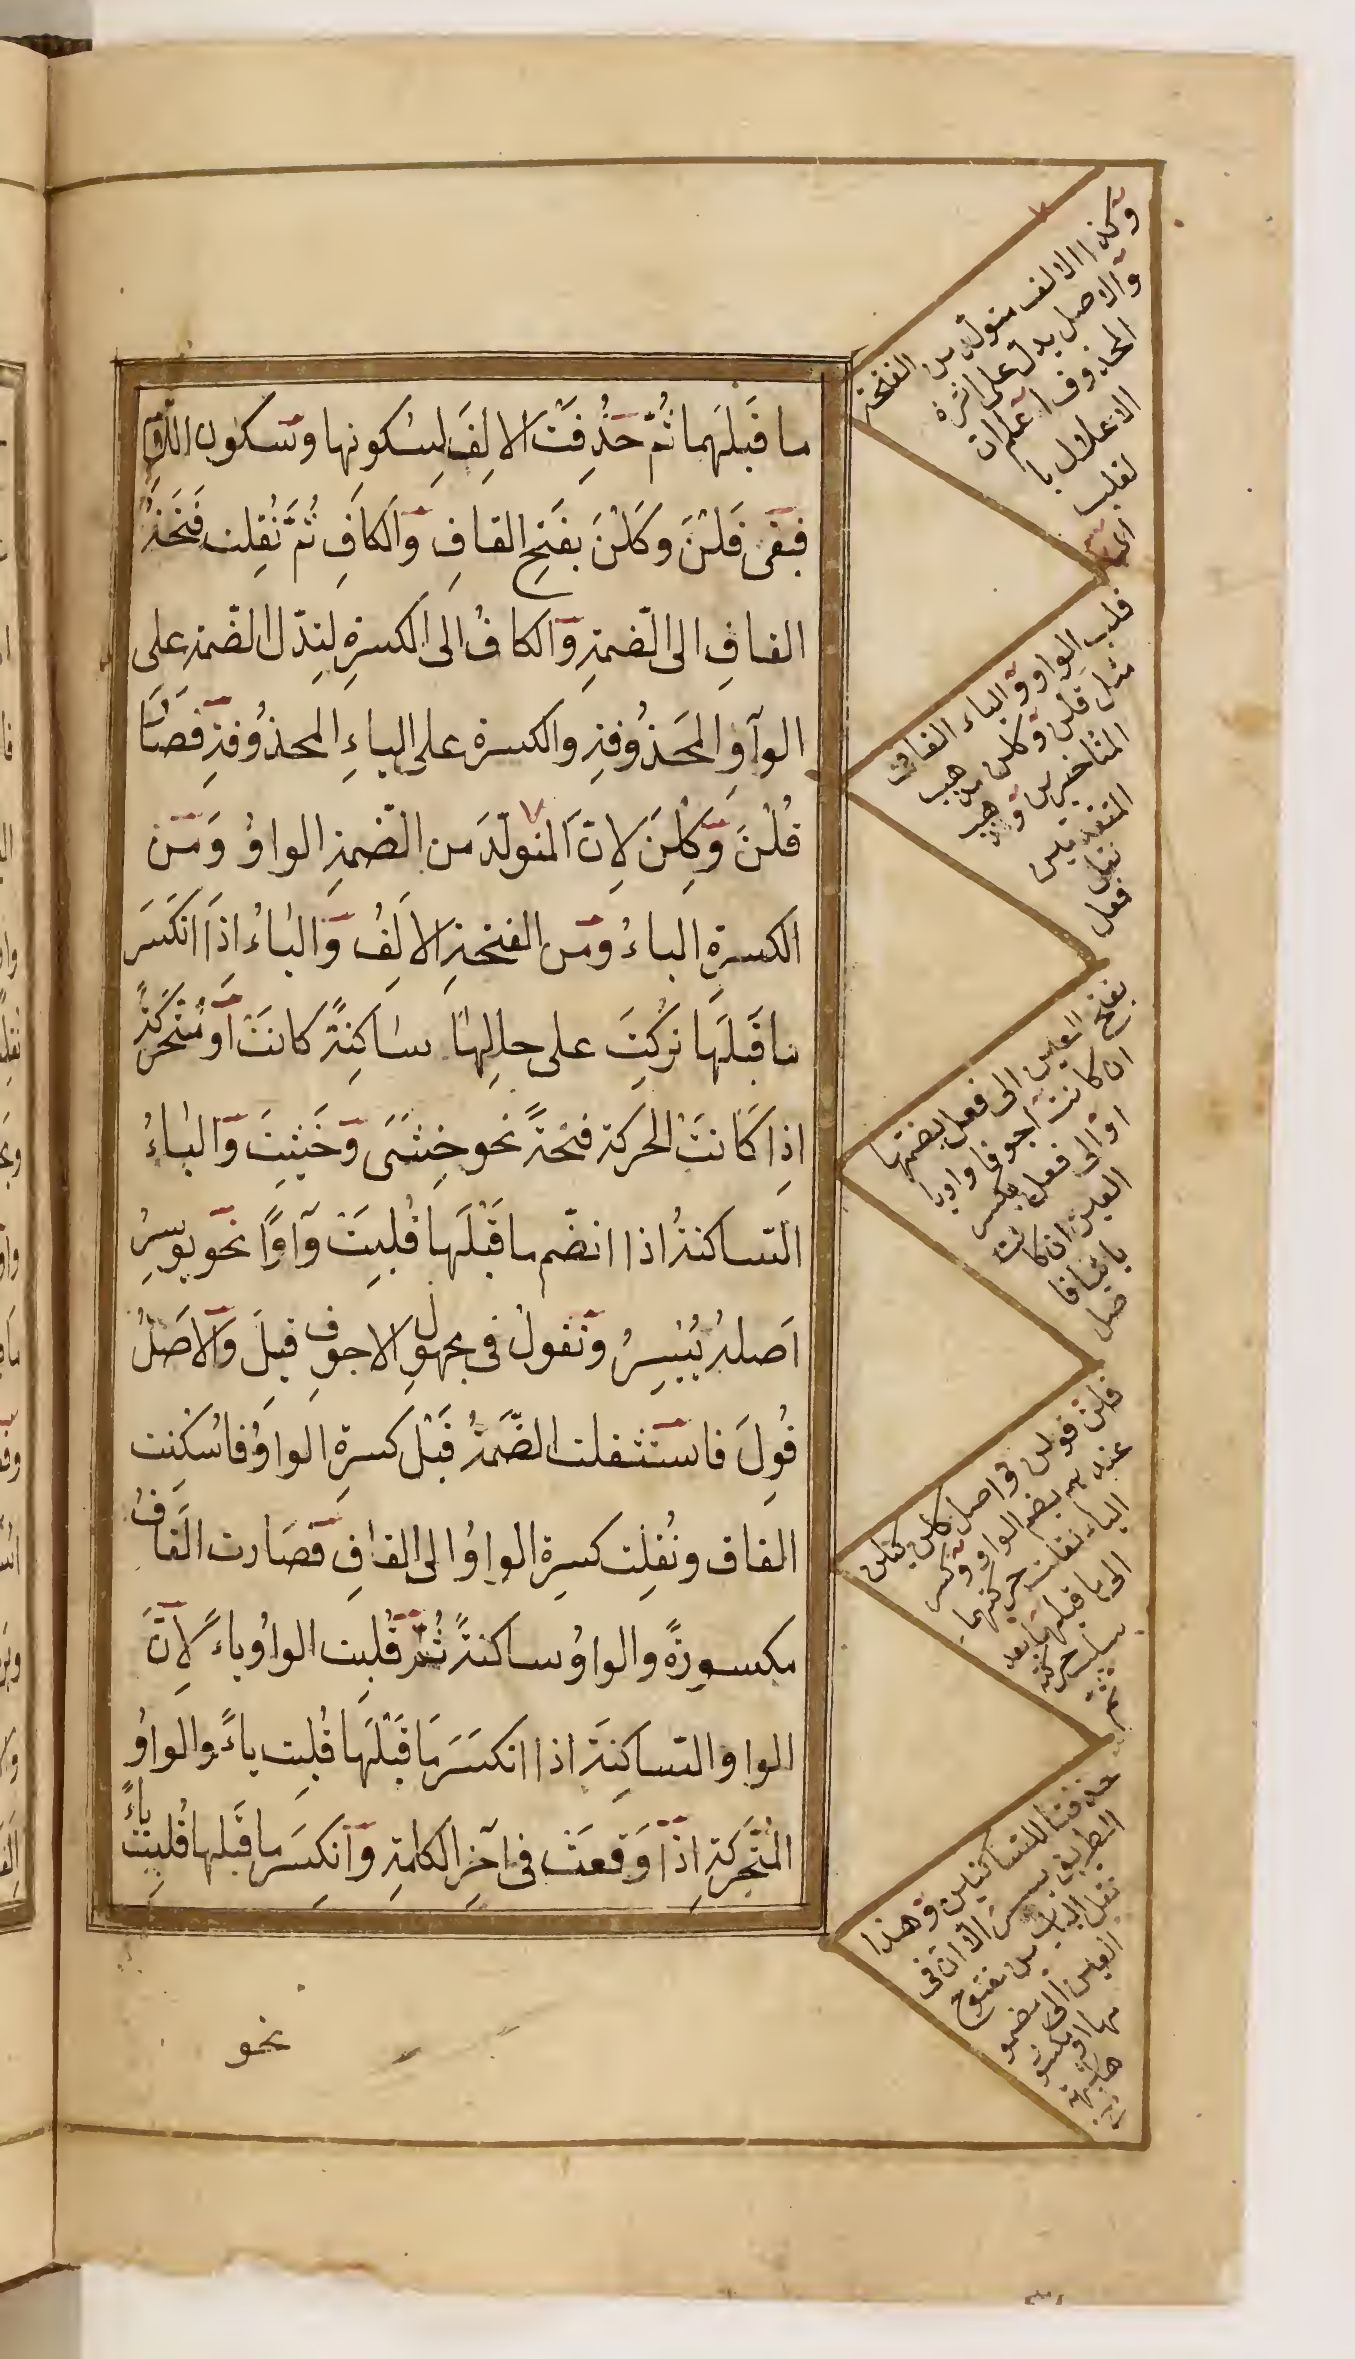 ما قَبلَهما ثُمَّ حُذِفَتْ الالِفَ لِسُكونِها وسكون اللام
فبقى قَلْنَ وكَلْنَ بفَتحِ القافِ والكافِ ثُمَّ نُقِلت فَتحَةُ
القافِ الى الضّمةِ والكافُ الى الكسرةِ لتدلّ الضّمة على
الواوِ المحَذُوفةِ والكسرة على الياءِ المحذُوفةِ فصَارَتا
قُلْنَ وَكِلْنَ لانَّ المتولّدَ من الضّمةِ الواوُ وَمن
الكسرةِ الياءُ ومن الفتحةِ الالِفُ والياءُ اذَا انكَسَرَ
ما قَبلَها تُرِكَتْ على حالِها ساكِنةً كانَتْ اَو مُتحَرِكَةً
اذِا كَانَتْ الحركة فتحةً نحو خِشَىَ وَخَشِيَتْ والياءُ
السّاكنةُ اذا انضّم ما قَبْلَها قُلِبَتْ وآوًا نحو يوسِرُ
اَصلهُ يُيْسِرُ وتقولُ فى مجهولِ الاجوفِ قيلَ والاصَلُ
قُولَ فاستثقلت الضَّمةُ قَبْل كسرةِ الواوُ فاسُكِنت
القاف ونُقلِت كسرة الواوُ الى القافِ فصَارت القافُ
مكسورةً والواوُ ساكنةً ثُمَّ قُلِبت الواوُ ياءً لانَّ
الواو السّاكِنَة اذا انكسَرَ مَا قَبْلَها قُلِبت ياءً والواوُ
المُتَحرِكةِ اذَا وَقعَتْ فى آخِرِ الكلمةِ وانكِسَرَ ما قَبلها قُلِبَتْ ياءً
نحو
وكذا الالف متولّد من الفتحة
والاصل يدلّ على
المحذوف اعلم ان
الاعلال با
لقلب
قلب الواو والياء الفا فى
مثل قلن وكلن مذهب
المتأخرين ومذهب
المتقدمين
نقل
فعل
بفتح العين الى فعل بضمها
ان كانت اجوفا واويا
او الى فعل بكسر
العين ان كانت
يائيا فا
صل
قلن قولن فى اصل كلن كيلن
عندهم بضم الواو وكسر
الياء نقلت حركتهما
الى ما قبلهما بعد
سلب حركة
ثم
حذفتا للساكنين وهذا
الطريق يسير الا ان فى
نقل الباب من مفتوح
العين الى مضمو
مها او مكسو